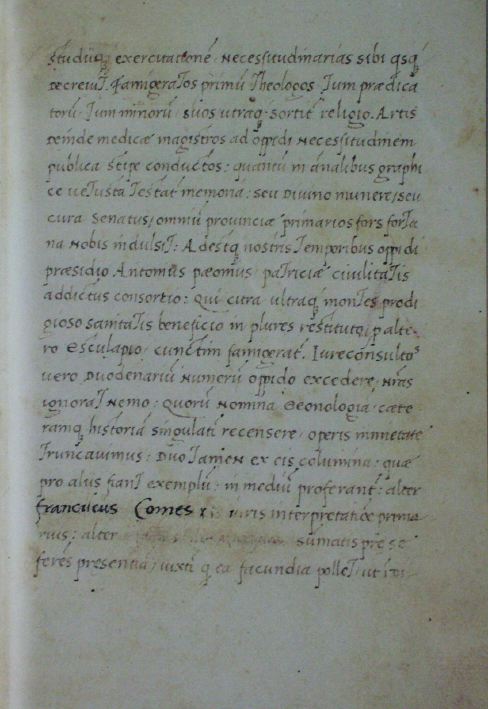 studiiq; exercitationē necessitudinarias sibi qsq;
decreuit. Famigeratos primū Theologos tum prædica
torū, tum minorū, suos utraq; sortit religio. Artis
deinde medicæ magistros ad oppidi necessitudinem
publica stipe conductos: quantū in analibus graphi
ce uetusta testat memoria: seu diuino munere, seu
cura senatus, omniū prouinciæ primarios fors forta
na nobis indulsit: Adestq; nostris temporibus oppidi
præsidio Antonius pæonius patriciæ ciuilitatis
addictus consortio: qui citra ultraq; montes prodi
gioso sanitatis beneficio in plures restituto, p alte
ro Esculapio, cunctim famigerat. Iureconsultos
uero duodenariū numerū oppido excedere, nr̄as
ignorat nemo: Quorū nomina geonologia, cæte
ramq; historiā singulati recensere, operis inmietate
truncauimus: duo tamen ex eis columina: quæ
pro aliis fiant exemplū: in mediū proferant: alter
franciscus Comes iuris interpretatiōe prima
rius: alter sumatis præ se
feres presentia, iuxti q ea facundia pollet, ut